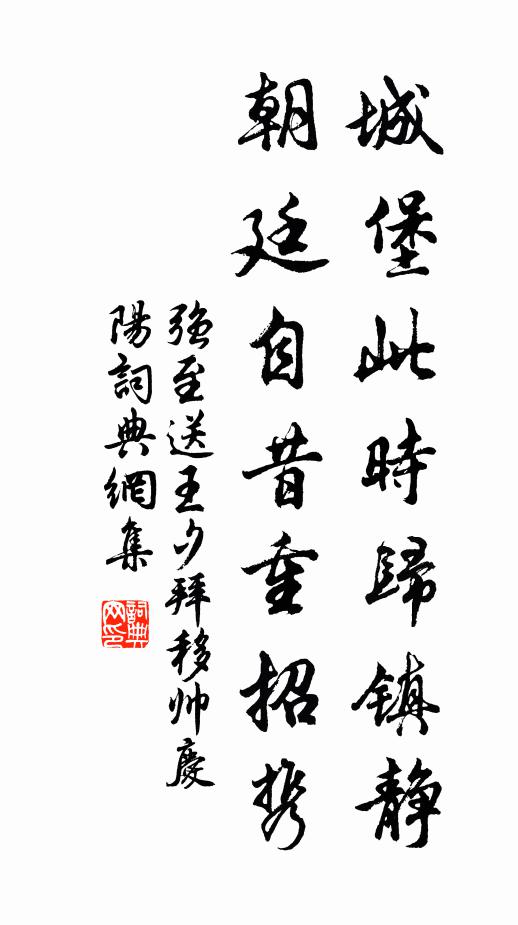 城堡此時歸镇静
朝廷自昔重招携
强至送王少拜移帅慶
陽詞典網集
詞典网印